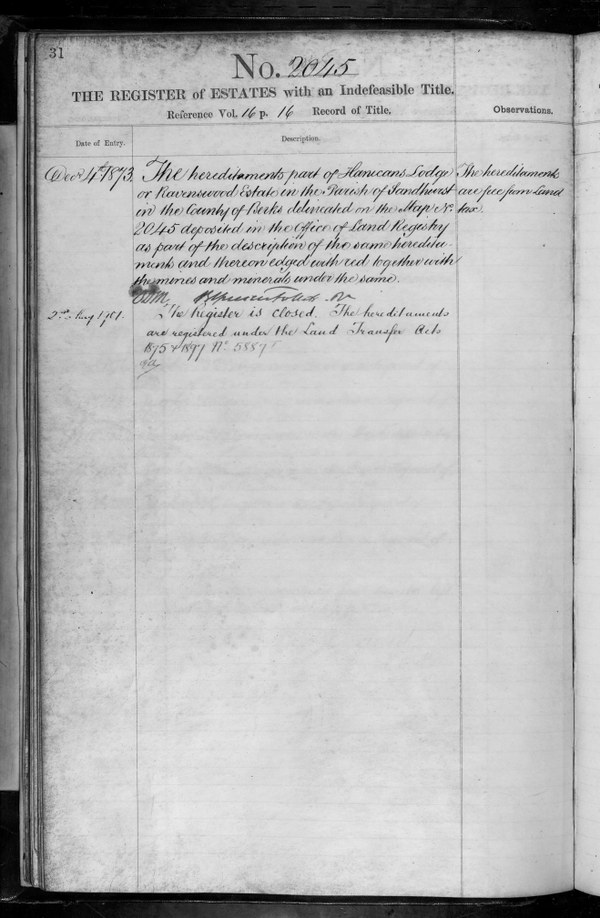 31
No. 2045
THE REGISTER of ESTATES with an Indefeasible Title.
Reference Vol. 16 p. 16 Record of Title.
Observations.
Date of Entry.
Description.
Decr 4th 1873.
The hereditaments part of Hanicans Lodge
or Ravenswood Estate in the Parish of Sandhurst
in the County of Berks delineated on the Map No.
2045 deposited in the Office of Land Registry
as part of the description of the same heredita-
ments and thereon edged with red together with
the mines and minerals under the same.
The hereditaments
are free from Land
tax.
2nd Aug 1901.
The Register is closed. The hereditaments
are registered under the Land Transfer Acts
1875 & 1897 No. 5887